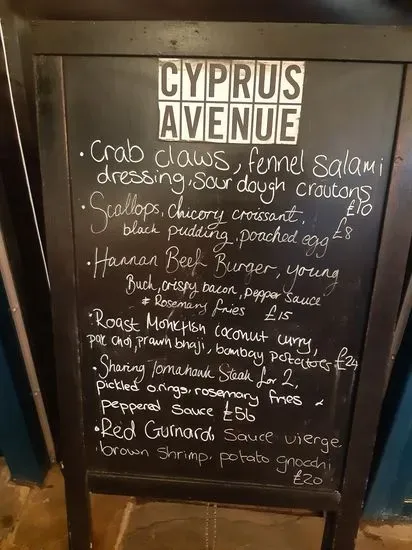 CYPRUS
AVENUE
• Crab claws, fennel salami
dressing, sour dough croutons
£10
• Scallops, chicory croissant,
black pudding, poached egg £8
• Hannan Beef Burger, young
Buck, crispy bacon, pepper sauce
& Rosemary fries £15
• Roast Monkfish coconut curry,
pak choi, prawn bhaji, bombay potatoes £24
• Sharing Tomahawk Steak for 2,
pickled o.rings, rosemary fries &
peppered sauce £56
• Red Gurnard, sauce vierge
brown shrimp, potato gnocchi
£20